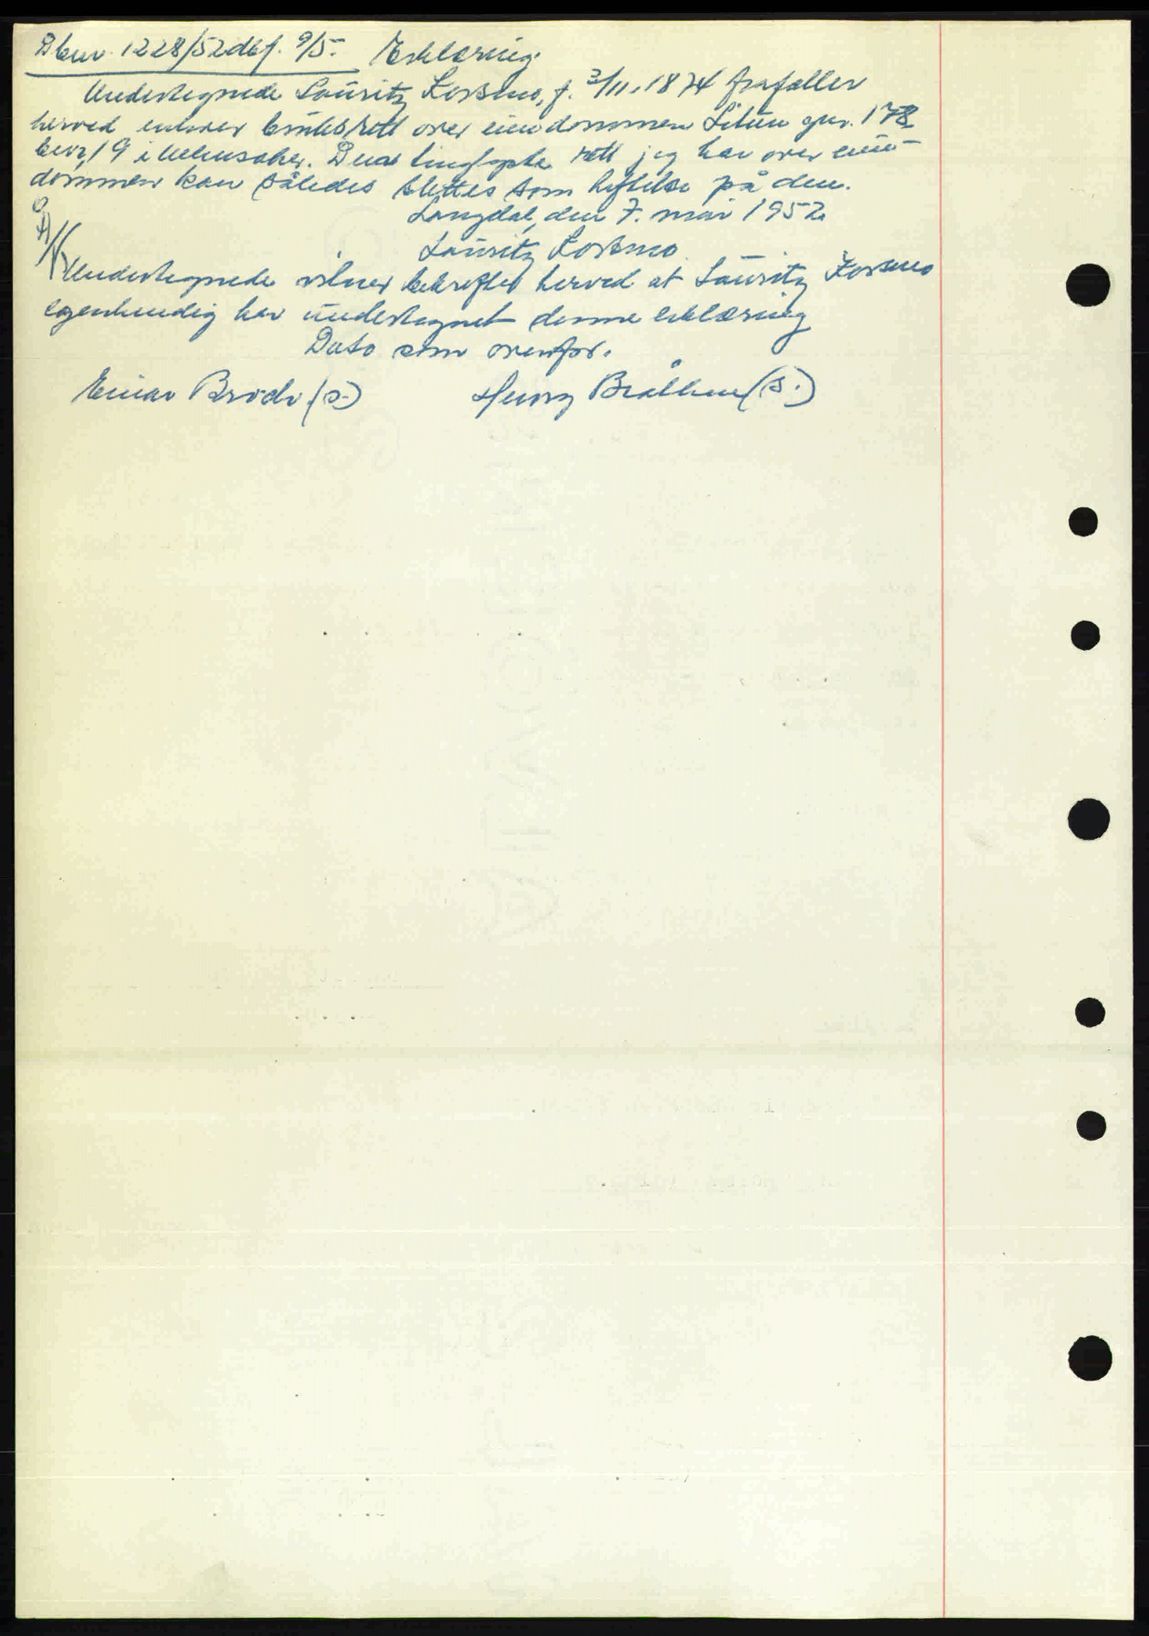 Dbnr. 1228/52 dbf. 9/5. Erklæring.
Undertegnede Lauritz Kosmo, f. 3/11.1874 frafaller
herved enhver bruksrett over eiendommen Litun gnr. 178
bnr. 19 i Ullensaker. Den tinglyste rett jeg har over eien-
dommen kan således slettes som heftelse på den.
Langdal, den 7. mai 1952.
Lauritz Kosmo
Undertegnede vitner bekrefter herved at Lauritz Kosmo
egenhendig har undertegnet denne erklæring
Dato som ovenfor.
Einar (s.) Georg Bråthen (s.)